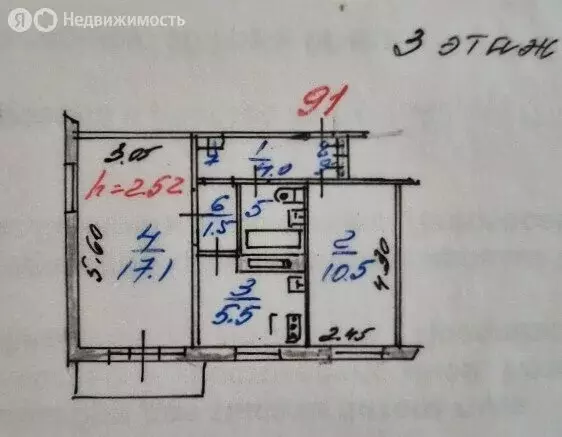 Я Недвижимость
3 этаж
91
3.05
h=2.52
7
1
4.0
8
6
1.5
5
2
10.5
4.30
4
17.1
5.60
3
5.5
2.45